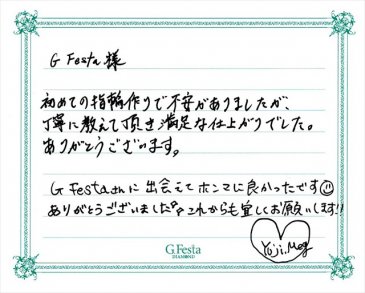 G Festa 様
初めての指輪作りで不安がありましたが、
丁寧に教えて頂き満足な仕上がりでした。
ありがとうございます。
G Festaさんに出会えてホンマに良かったです
ありがとうございました。これからも宜しくお願いします!!
Yoji. Meg
G.Festa
DIAMOND